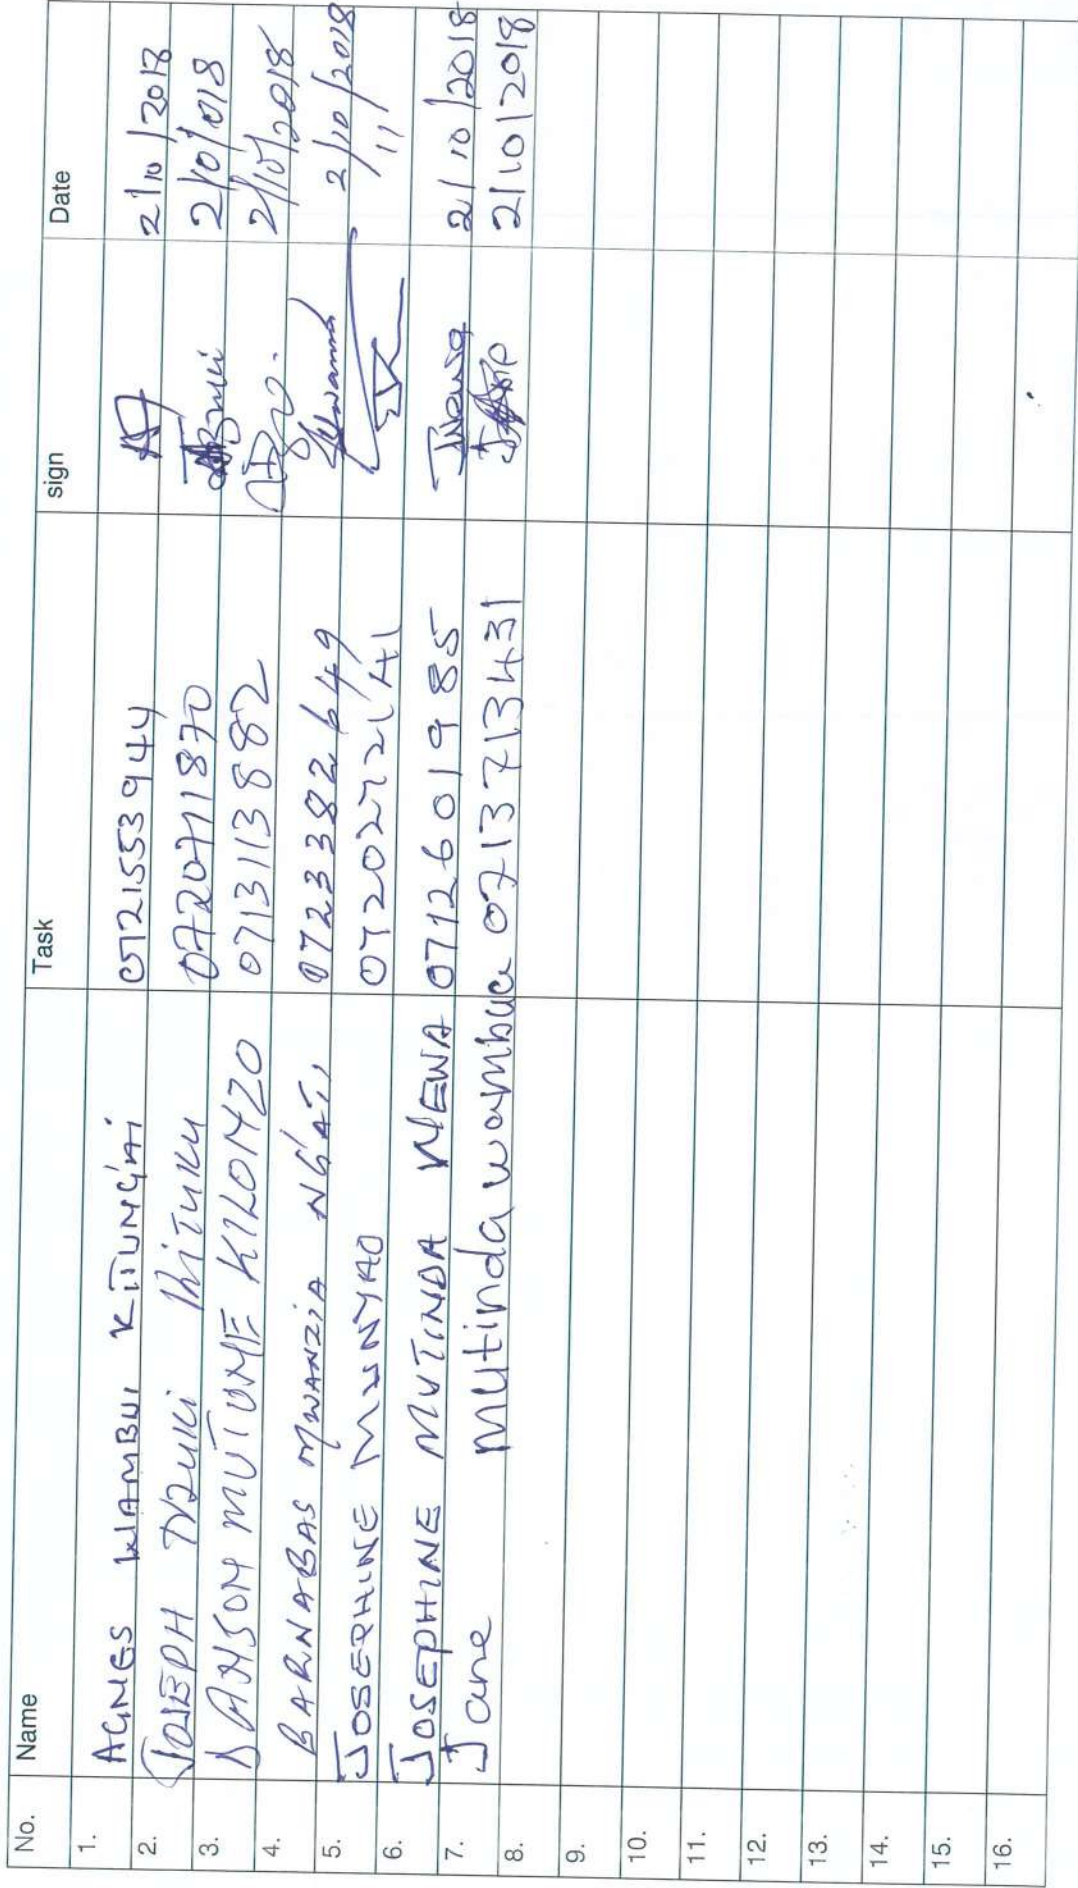 No. Name Task sign Date
1. AGNES WAMBUI KITUNGAI 0721553944 2/10/2018
2. JOSEPH NZUKI KITUKU 0720711870 2/10/018
3. DANSON MUTUME KILONZO 0713113882 2/10/2018
4. BARNABAS MWANZIA NGATI 0723382649 2/10/2018
5. JOSEPHINE MUNYAO 0720272141 11
6. JOSEPHINE MUTINDA MEWA 0712601985 2/10/2018
7. Jane Mutinda wambua 0713713431 2/10/2018
8.
9.
10.
11.
12.
13.
14.
15.
16.